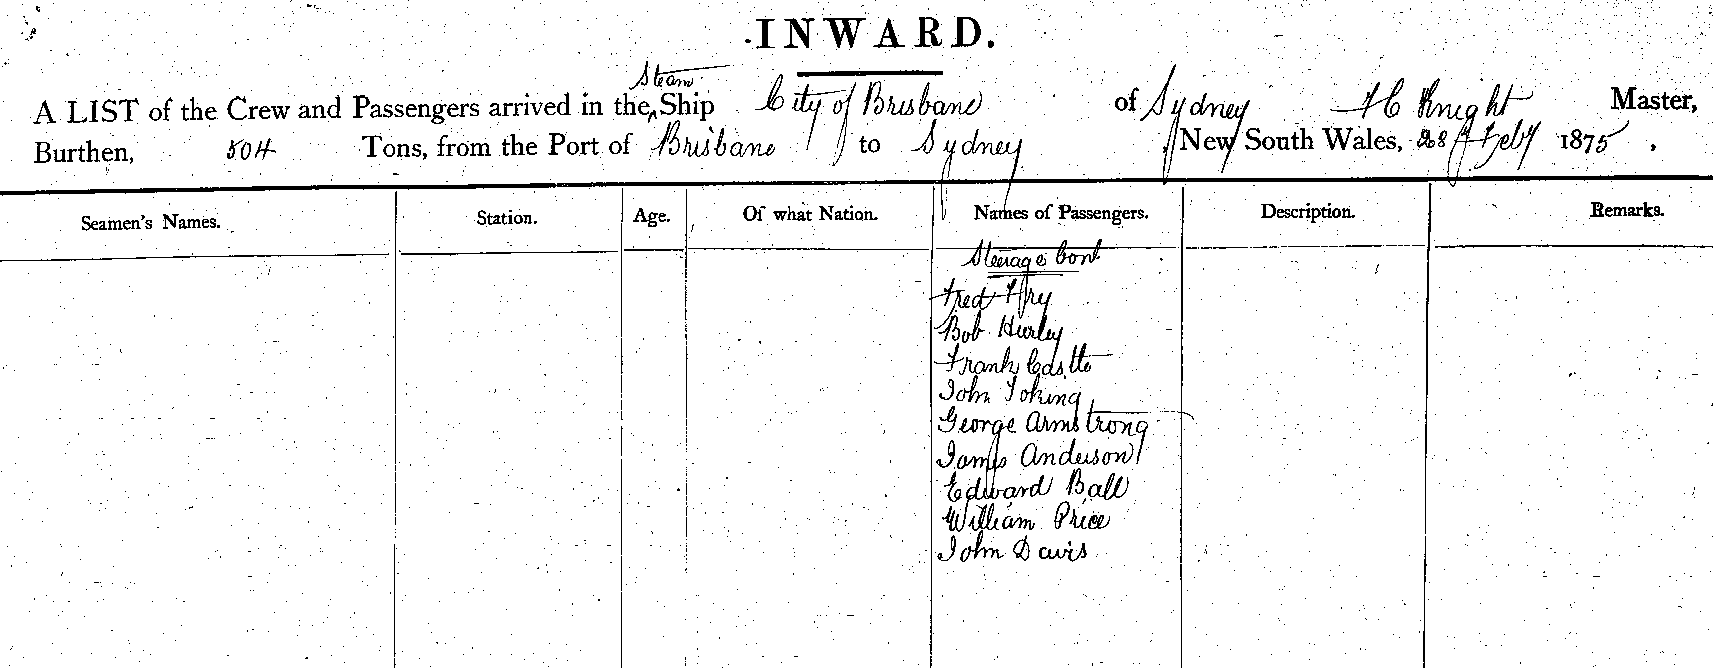 INWARD.
Steam
A LIST of the Crew and Passengers arrived in the ^ Ship City of Brisbane of Sydney Knight Master,
Burthen, 504 Tons, from the Port of Brisbane to Sydney New South Wales, 28 Feby 1875.
Seamen's Names. Station. Age. Of what Nation. Names of Passengers. Description. Remarks.
Steerage Cont
Fred Fry
Bob Hurley
Frank
John
George Armstrong
James Anderson
Edward Ball
William Price
John Davis